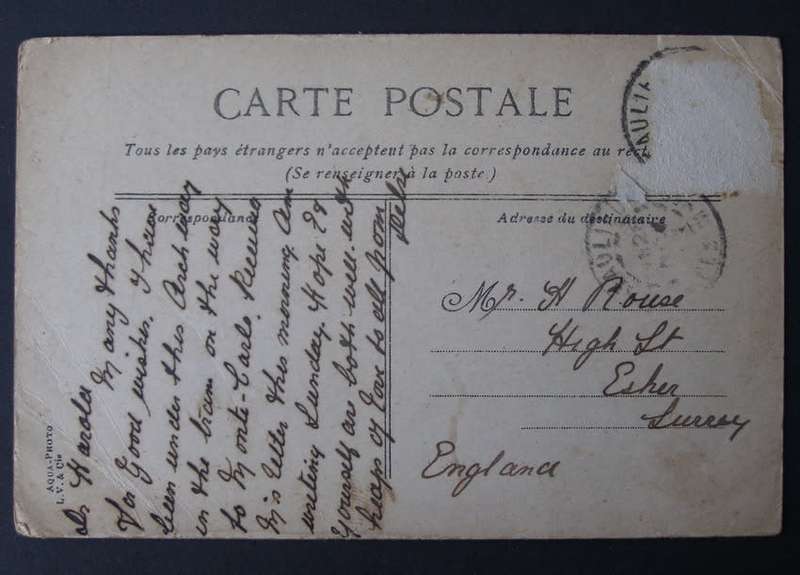 CARTE POSTALE
Tous les pays étrangers n'acceptent pas la correspondance au recto
(Se renseigner à la poste.)
Correspondance
Adresse du destinataire
Dr Harold
Many thanks
for Good wishes. I have
been under this Arch way
in the tram on the way
to Monte-Carlo. Received
M's letter this morning. Am
writing Sunday. Hope Ed &
Yourself are both well. with
heaps of love to all from
Mr. H Rouse
High St
Esher
Surrey
England
AQUA-PHOTO
L.V. & Cie
BEAULIEU